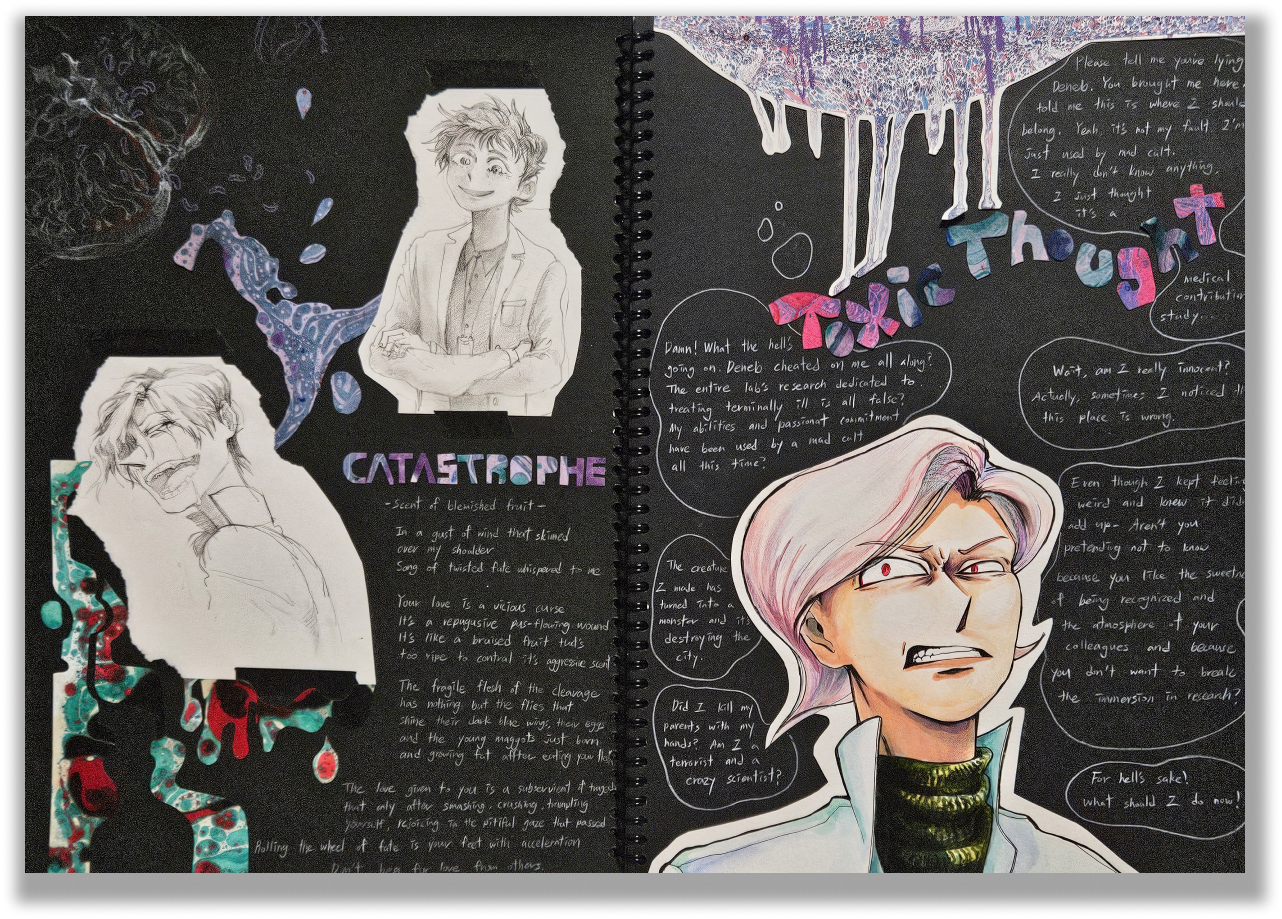 CATASTROPHE
-Scent of blemished fruit-
In a gust of wind that skimed
over my shoulder
Song of twisted fate whispered to me
Your love is a vicious curse
It's a repugusive pus-flowing wound
It's like a bruised fruit that's
too ripe to control it's aggresive scent
The fragile flesh of the cleavage
has nothing but the flies that
shine their dark blue wings, their eggs
and the young maggots just born
and growing fat aftter eating you
The love given to you is a subservient
that only after smashing, crushing, trampling
yourself, rejoicing in the pitiful gaze that passed
Rolling the wheel of fate is your feet with acceleration
Don't beg for love from others.
Toxic Thought
Please tell me you're lying
Deneb. You brought me here
told me this is where I should
belong. Yeah, it's not my fault. I'm
just used by mad cult.
I really don't know anything,
I just thought
it's a
medical
contribution
study...
Damn! What the hell's
going on. Deneb cheated on me all along?
The entire lab's research dedicated to
treating terminally ill is all false?
My abilities and passionat commitment
have been used by a mad cult
all this time?
Wait, am I really innocent?
Actually, sometimes I noticed
this place is wrong.
Even though I kept feeling
weird and knew it didn
add up- Aren't you
pretending not to know
because you like the sweetne
of being recognized and
the atmosphere of your
colleagues and because
you don't want to break
the immersion in research?
The creature
I made has
turned into a
monster and it
destroying the
city.
Did I kill my
parents with my
hands? Am I a
terrorist and a
crazy scientist?
For hell's sake!
what should I do now!